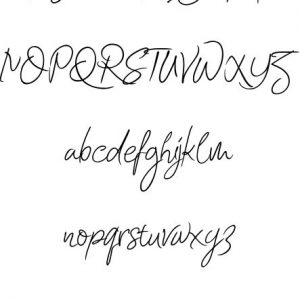 NOPQRSTUVWXYZ
abcdefghijklm
nopqrstuvwxyz